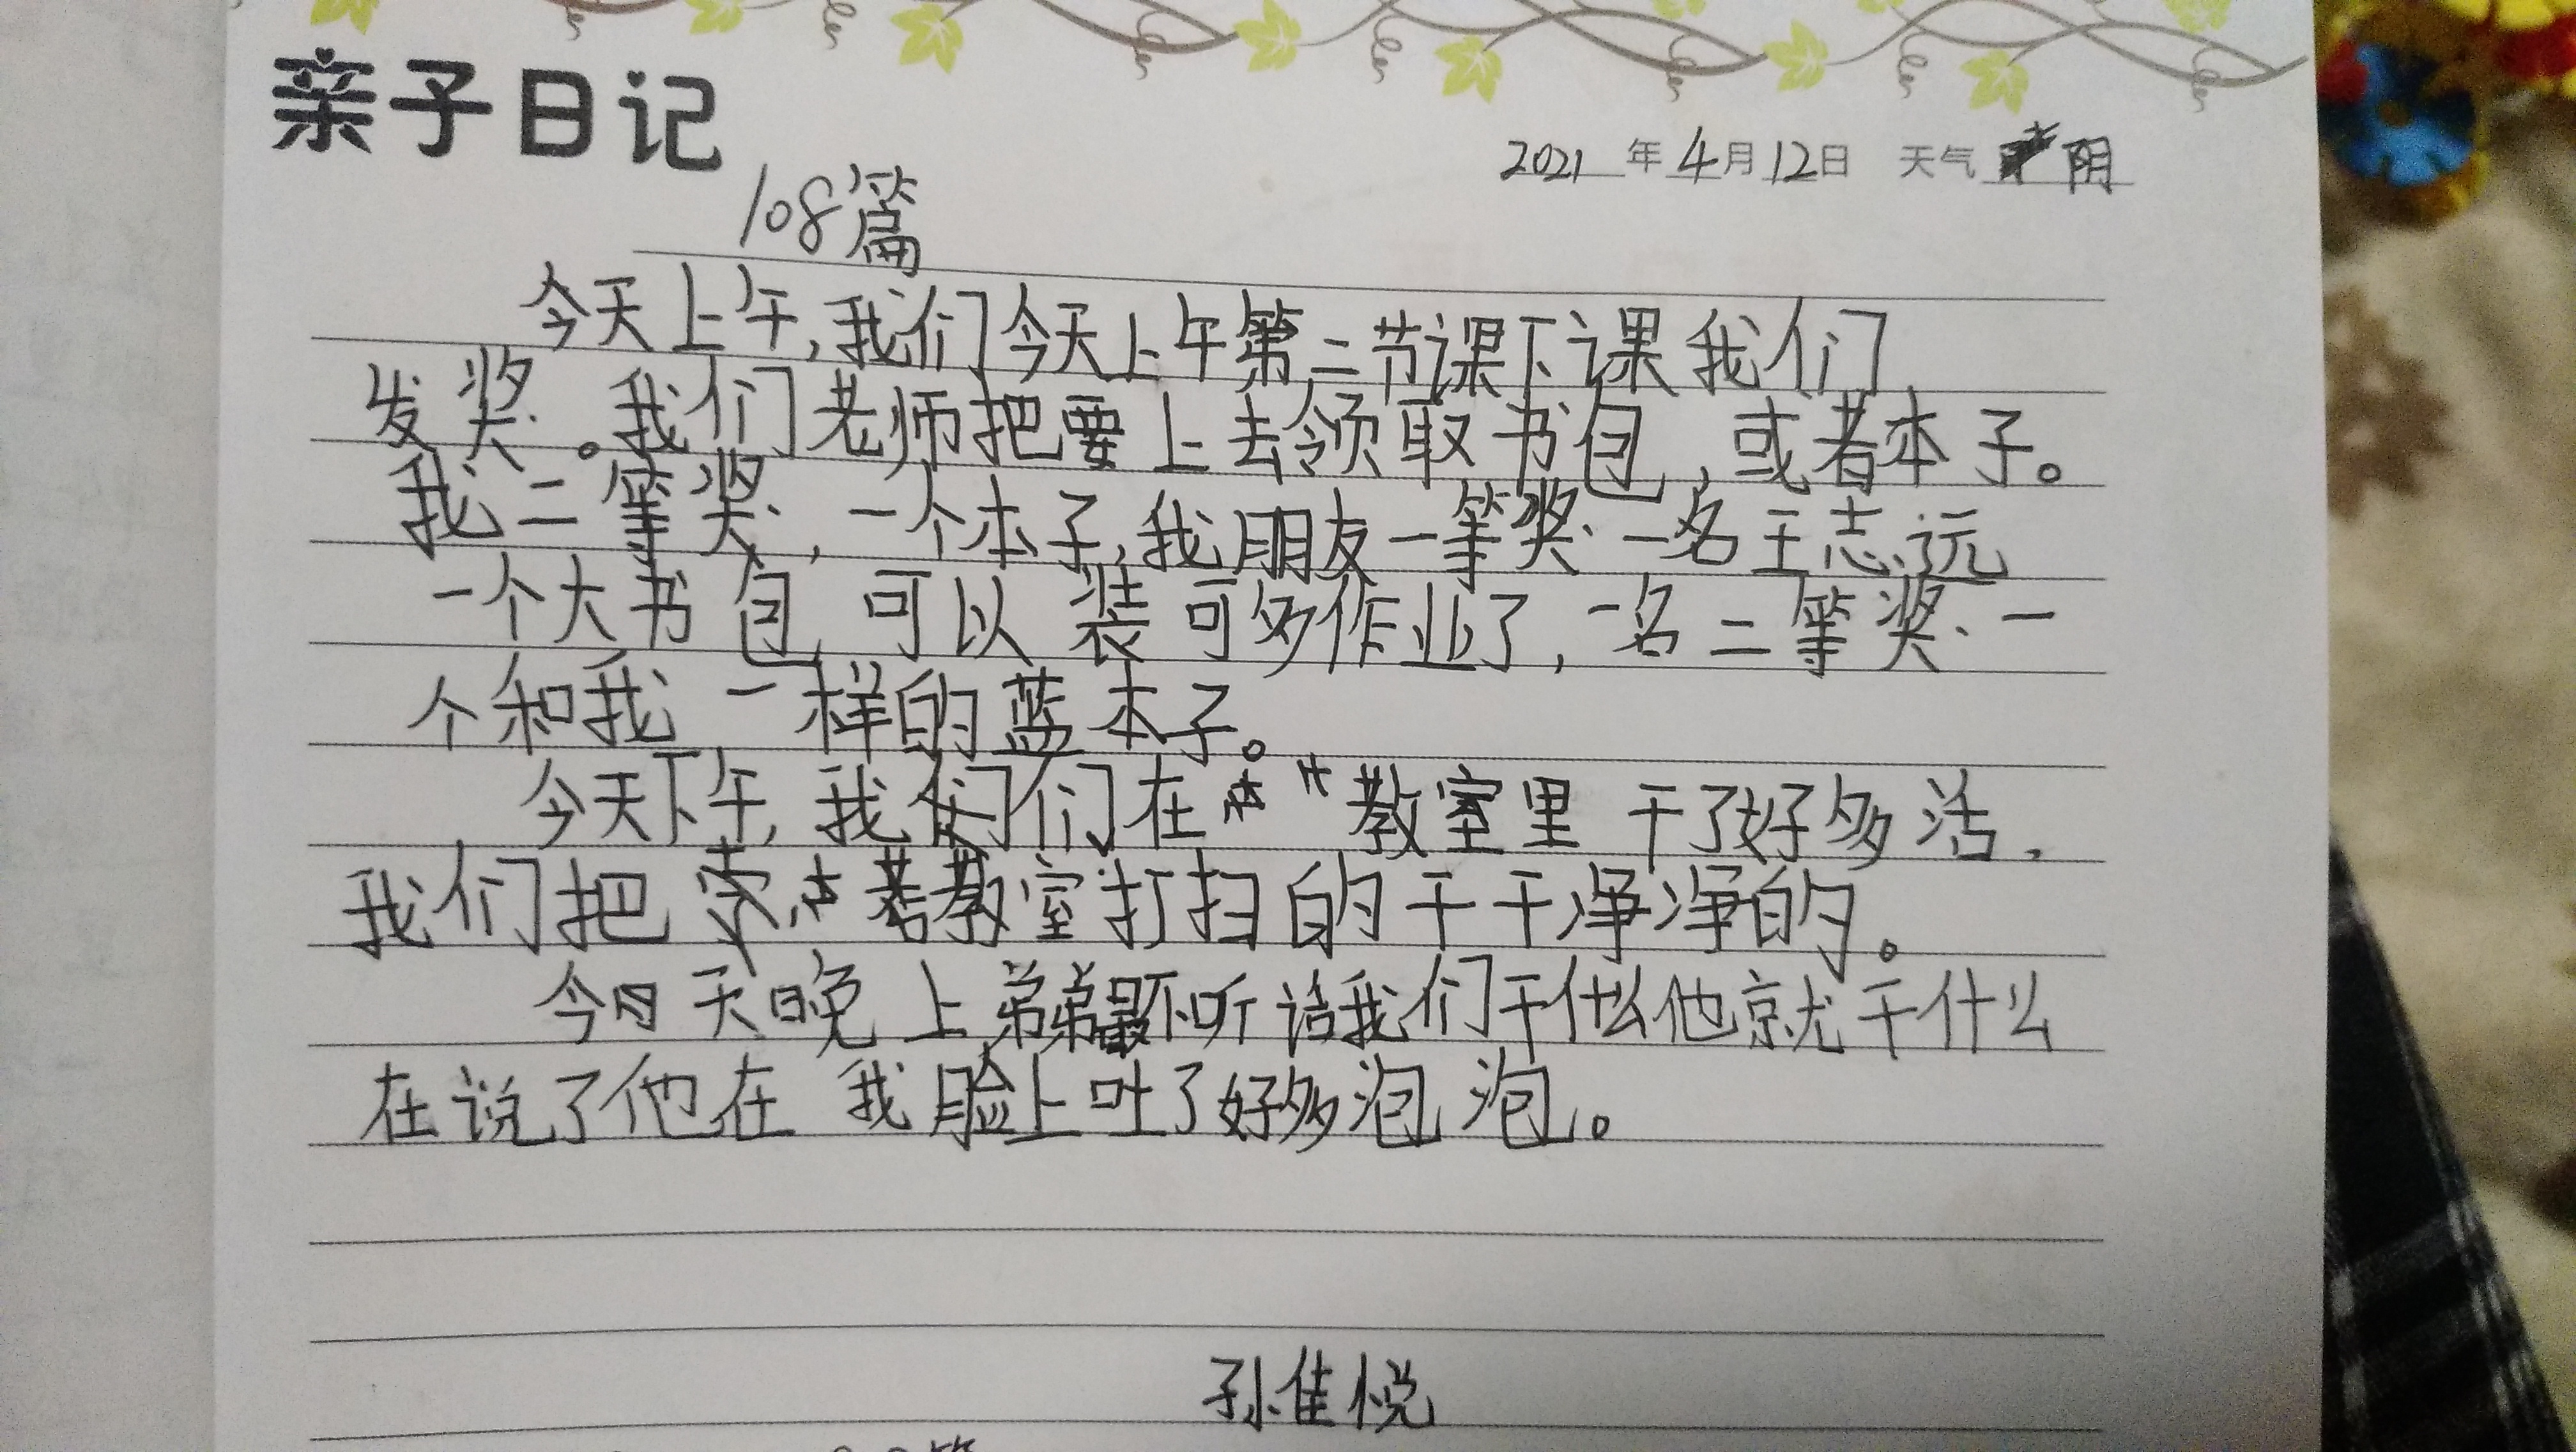 亲子日记
2021年4月12日 天气 阴
108篇
今天上午,我们今天上午第二节课下课我们
发奖。我们老师把要上去领取书包,或者本子。
我二等奖,一个本子,我朋友一等奖一名王志远
一个大书包,可以装可多作业了,一名二等奖一
个和我一样的蓝本子。
今天下午,我们们在教室里干了好多活,
我们把教室打扫的干干净净的。
今天晚上弟弟最不听话我们干什么他就干什么
在说了他在我脸上吐了好多泡泡。
孙佳悦